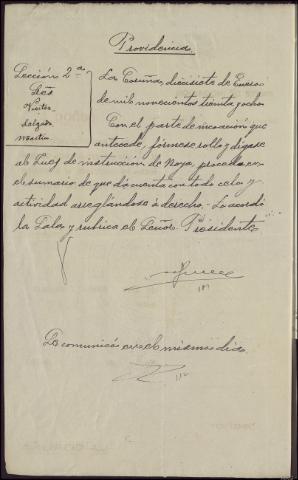 Providencia
Sección 2ª
Sres
Pintos
Salgado
Martin
La Coruña, diecisiete de Enero
de mil novecientos treinta y ocho.
Con el parte de incoación que
antecede, fórmese rollo y dígase
al Juez de instrucción de Noya, proceda en
el sumario de que da cuenta con todo celo y
actividad arreglándose á derecho.- Lo acordó
la Sala y rubrica el Señor Presidente
Se comunicó en el mismo dia.